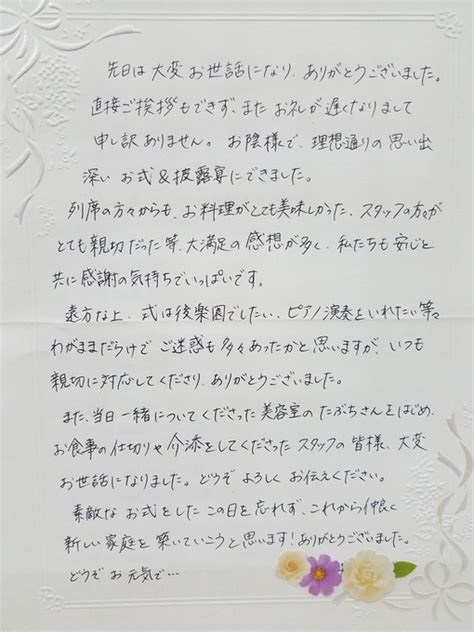 先日は大変お世話になり、ありがとうございました。
直接ご挨拶もできず、またお礼が遅くなりまして
申し訳ありません。お陰様で、理想通りの思い出
深いお式&披露宴にできました。
列席の方々からも、お料理がとても美味しかった、スタッフの方々が
とても親切だった等、大満足の感想が多く、私たちも安心と
共に感謝の気持ちでいっぱいです。
遠方な上、式は後楽園でしたい、ピアノ演奏をいれたい等々
わがままだらけでご迷惑も多々あったかと思いますが、いつも
親切に対応してくださり、ありがとうございました。
また、当日一緒についてくださった美容室のたぶちさんをはじめ、
お食事の仕切りや介添をしてくださったスタッフの皆様、大変
お世話になりました。どうぞよろしくお伝えください。
素敵なお式をしたこの日を忘れず、これから仲良く
新しい家庭を築いていこうと思います!ありがとうございました。
どうぞお元気で…